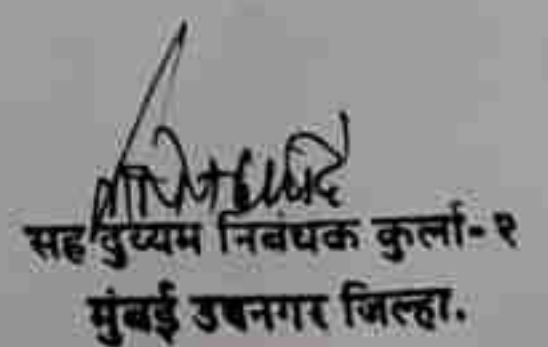 सह दुय्यम निबंधक कुर्ला-१
मुंबई उपनगर जिल्हा.